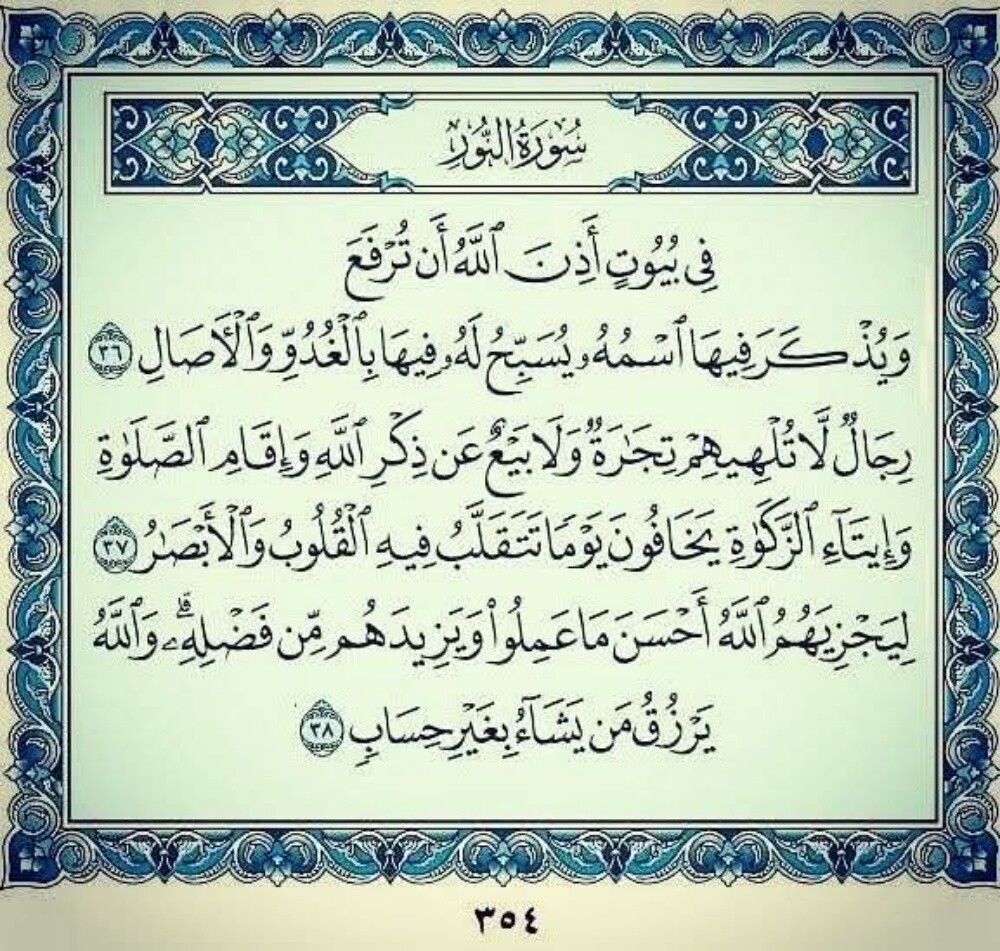 سُورَةُ النُّورِ
فِى بُيُوتٍ أَذِنَ ٱللَّهُ أَن تُرْفَعَ
وَيُذْكَرَ فِيهَا ٱسْمُهُۥ يُسَبِّحُ لَهُۥ فِيهَا بِٱلْغُدُوِّ وَٱلْأَصَالِ ٣٦
رِجَالٌ لَّا تُلْهِيهِمْ تِجَٰرَةٌ وَلَا بَيْعٌ عَن ذِكْرِ ٱللَّهِ وَإِقَامِ ٱلصَّلَوٰةِ
وَإِيتَآءِ ٱلزَّكَوٰةِ يَخَافُونَ يَوْمًا تَتَقَلَّبُ فِيهِ ٱلْقُلُوبُ وَٱلْأَبْصَٰرُ ٣٧
لِيَجْزِيَهُمُ ٱللَّهُ أَحْسَنَ مَا عَمِلُوا۟ وَيَزِيدَهُم مِّن فَضْلِهِۦۗ وَٱللَّهُ
يَرْزُقُ مَن يَشَآءُ بِغَيْرِ حِسَابٍ ٣٨
٣٥٤